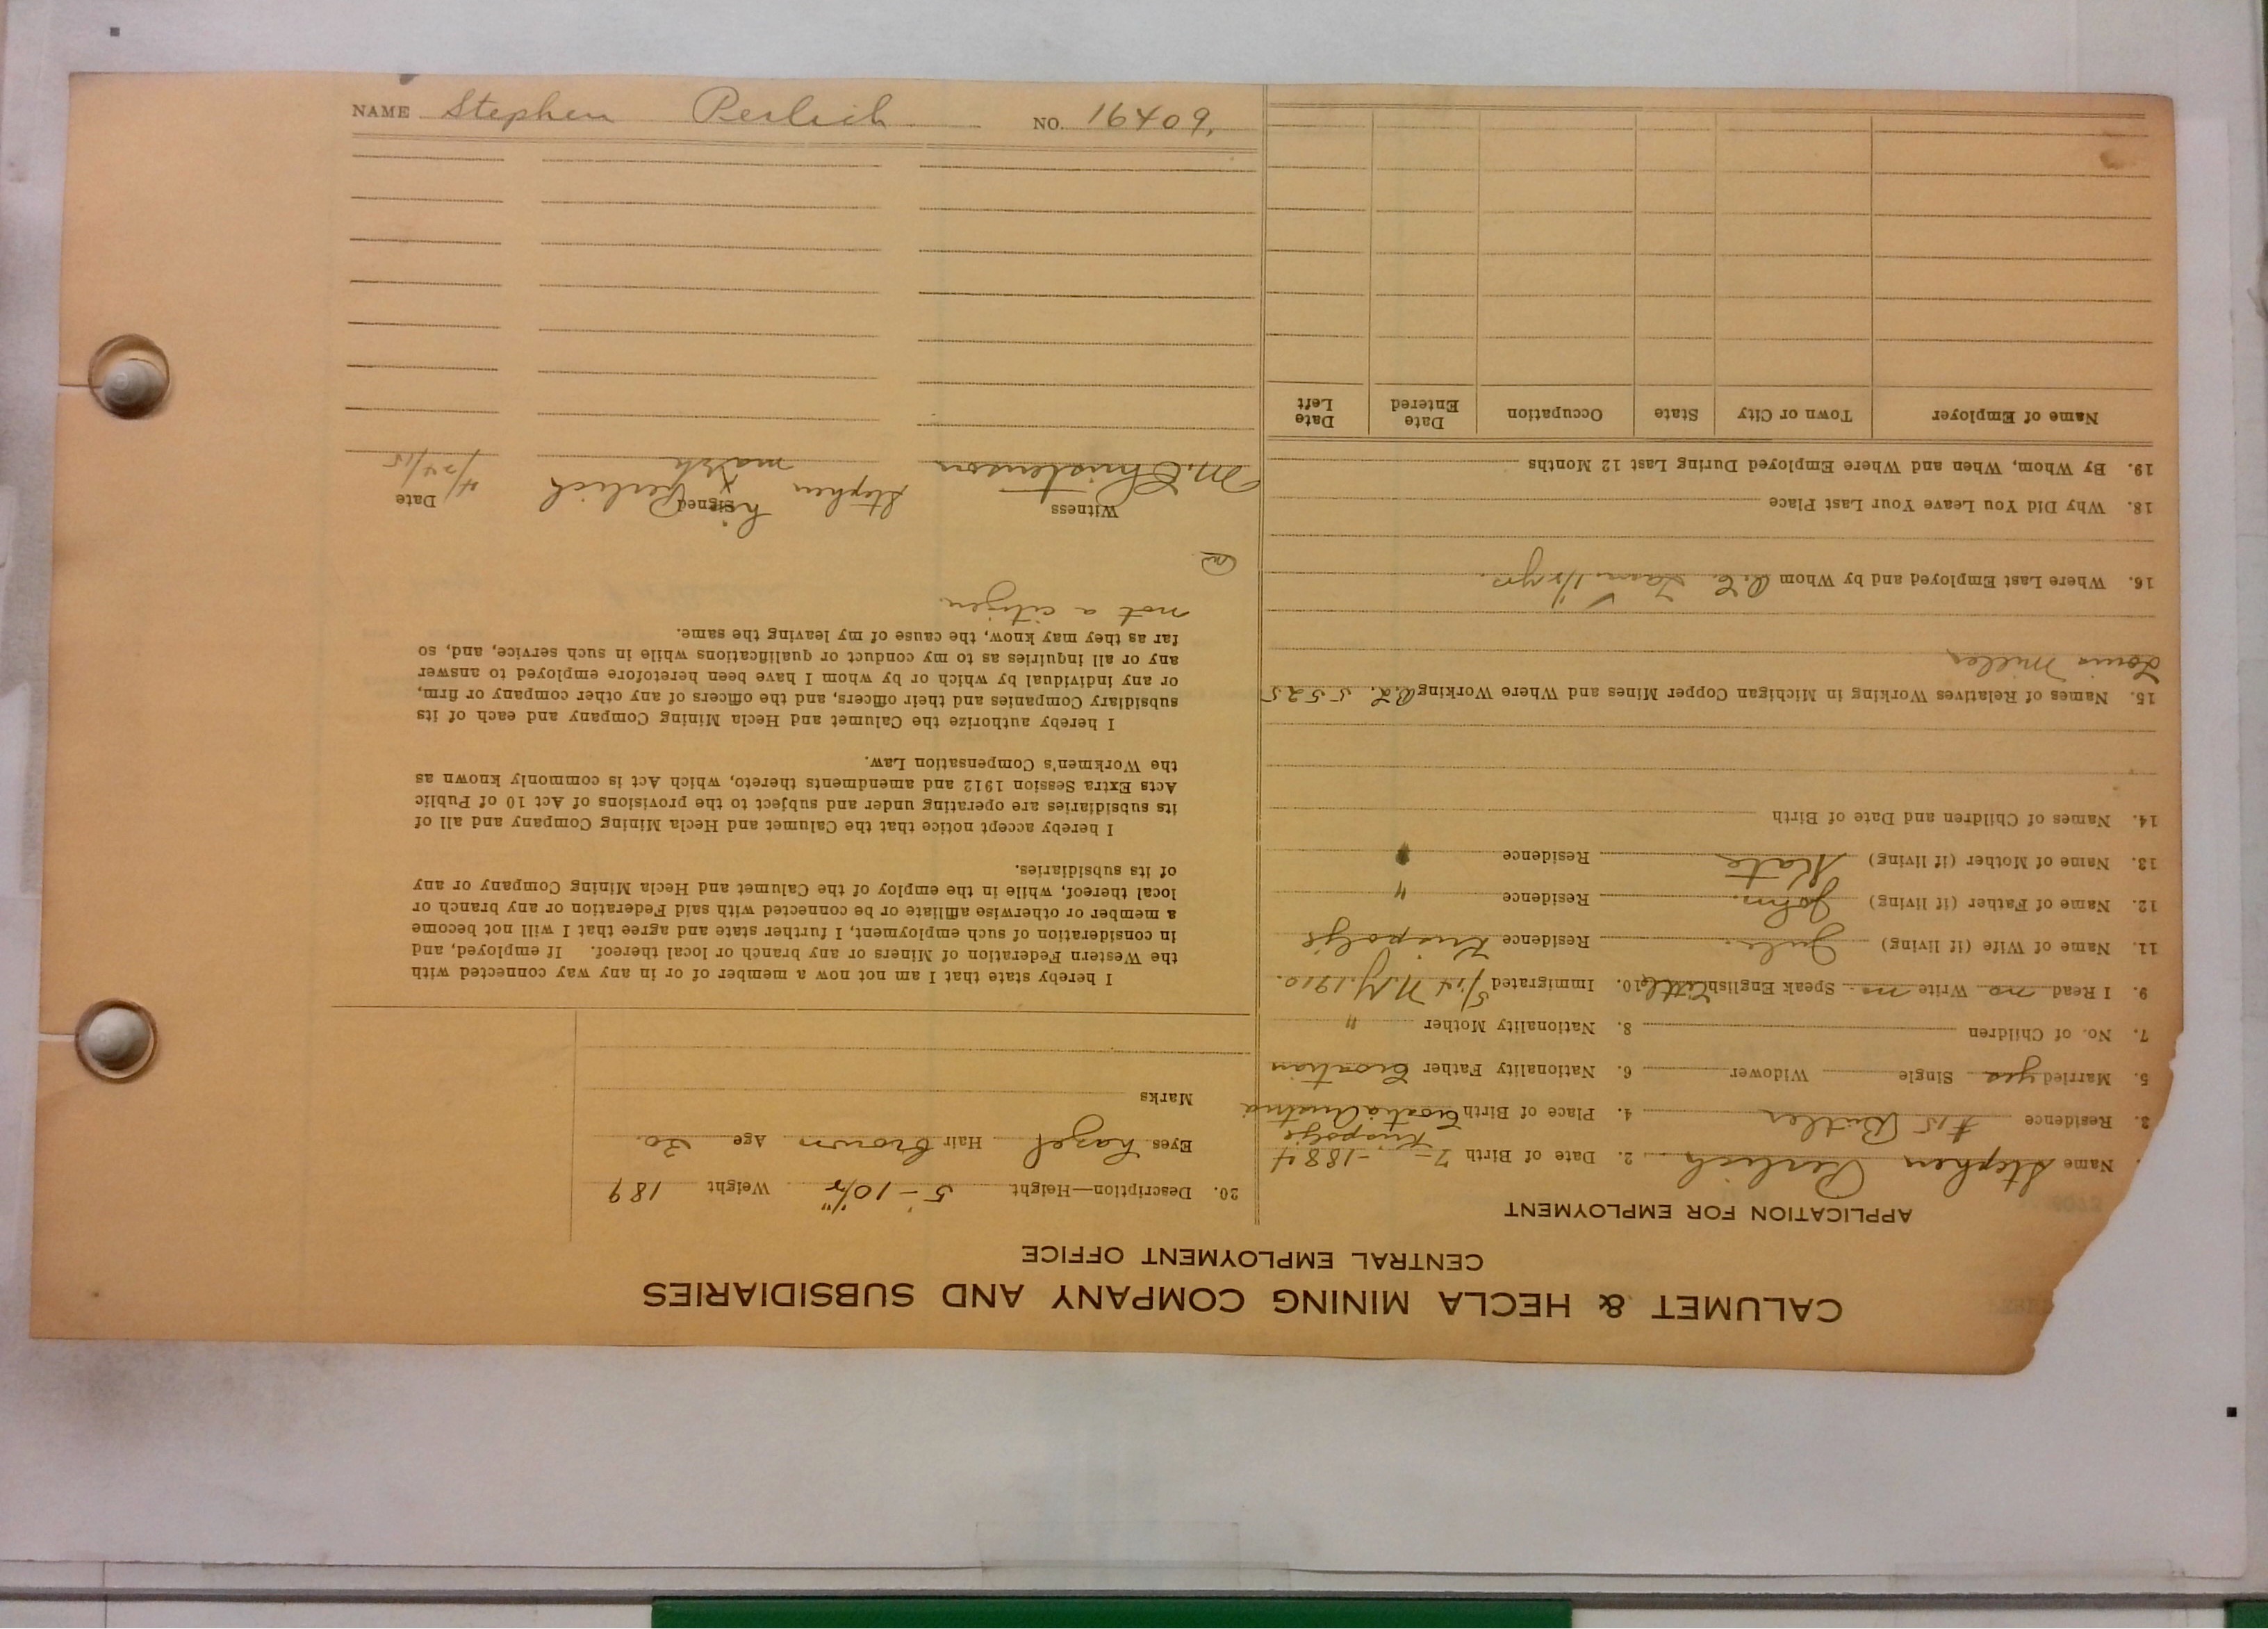 NAME Stephen Perlich NO. 16409.
CALUMET & HECLA MINING COMPANY AND SUBSIDIARIES
CENTRAL EMPLOYMENT OFFICE
APPLICATION FOR EMPLOYMENT
Name Stephen Perlich 2. Date of Birth 7 - - 1884
3. Residence #15 Butler 4. Place of Birth Croatia Austria
5. Married yes Single Widower 6. Nationality Father Croatian
7. No. of Children 8. Nationality Mother "
9. I Read no Write no Speak English Little 10. Immigrated 5/14 N.Y. 1910.
11. Name of Wife (if living) Residence
12. Name of Father (if living) John Residence "
13. Name of Mother (if living) Kate Residence
14. Names of Children and Date of Birth
15. Names of Relatives Working in Michigan Copper Mines and Where Working 5525
Louis Miller
16. Where Last Employed and by Whom
18. Why Did You Leave Your Last Place
19. By Whom, When and Where Employed During Last 12 Months
Name of Employer Town or City State Occupation Date Entered Date Left
20. Description—Height 5'-10½" Weight 189
Eyes hazel Hair brown Age 30
Marks
I hereby state that I am not now a member of or in any way connected with
the Western Federation of Miners or any branch or local thereof. If employed, and
in consideration of such employment, I further state and agree that I will not become
a member or otherwise affiliate or be connected with said Federation or any branch or
local thereof, while in the employ of the Calumet and Hecla Mining Company or any
of its subsidiaries.
I hereby accept notice that the Calumet and Hecla Mining Company and all of
its subsidiaries are operating under and subject to the provisions of Act 10 of Public
Acts Extra Session 1912 and amendments thereto, which Act is commonly known as
the Workmen's Compensation Law.
I hereby authorize the Calumet and Hecla Mining Company and each of its
subsidiary Companies and their officers, and the officers of any other company or firm,
or any individual by which or by whom I have been heretofore employed to answer
any or all inquiries as to my conduct or qualifications while in such service, and, so
far as they may know, the cause of my leaving the same.
not a citizen
Witness Signed Date
his
M. Christenson Stephen X Perlich 4/24/15
mark